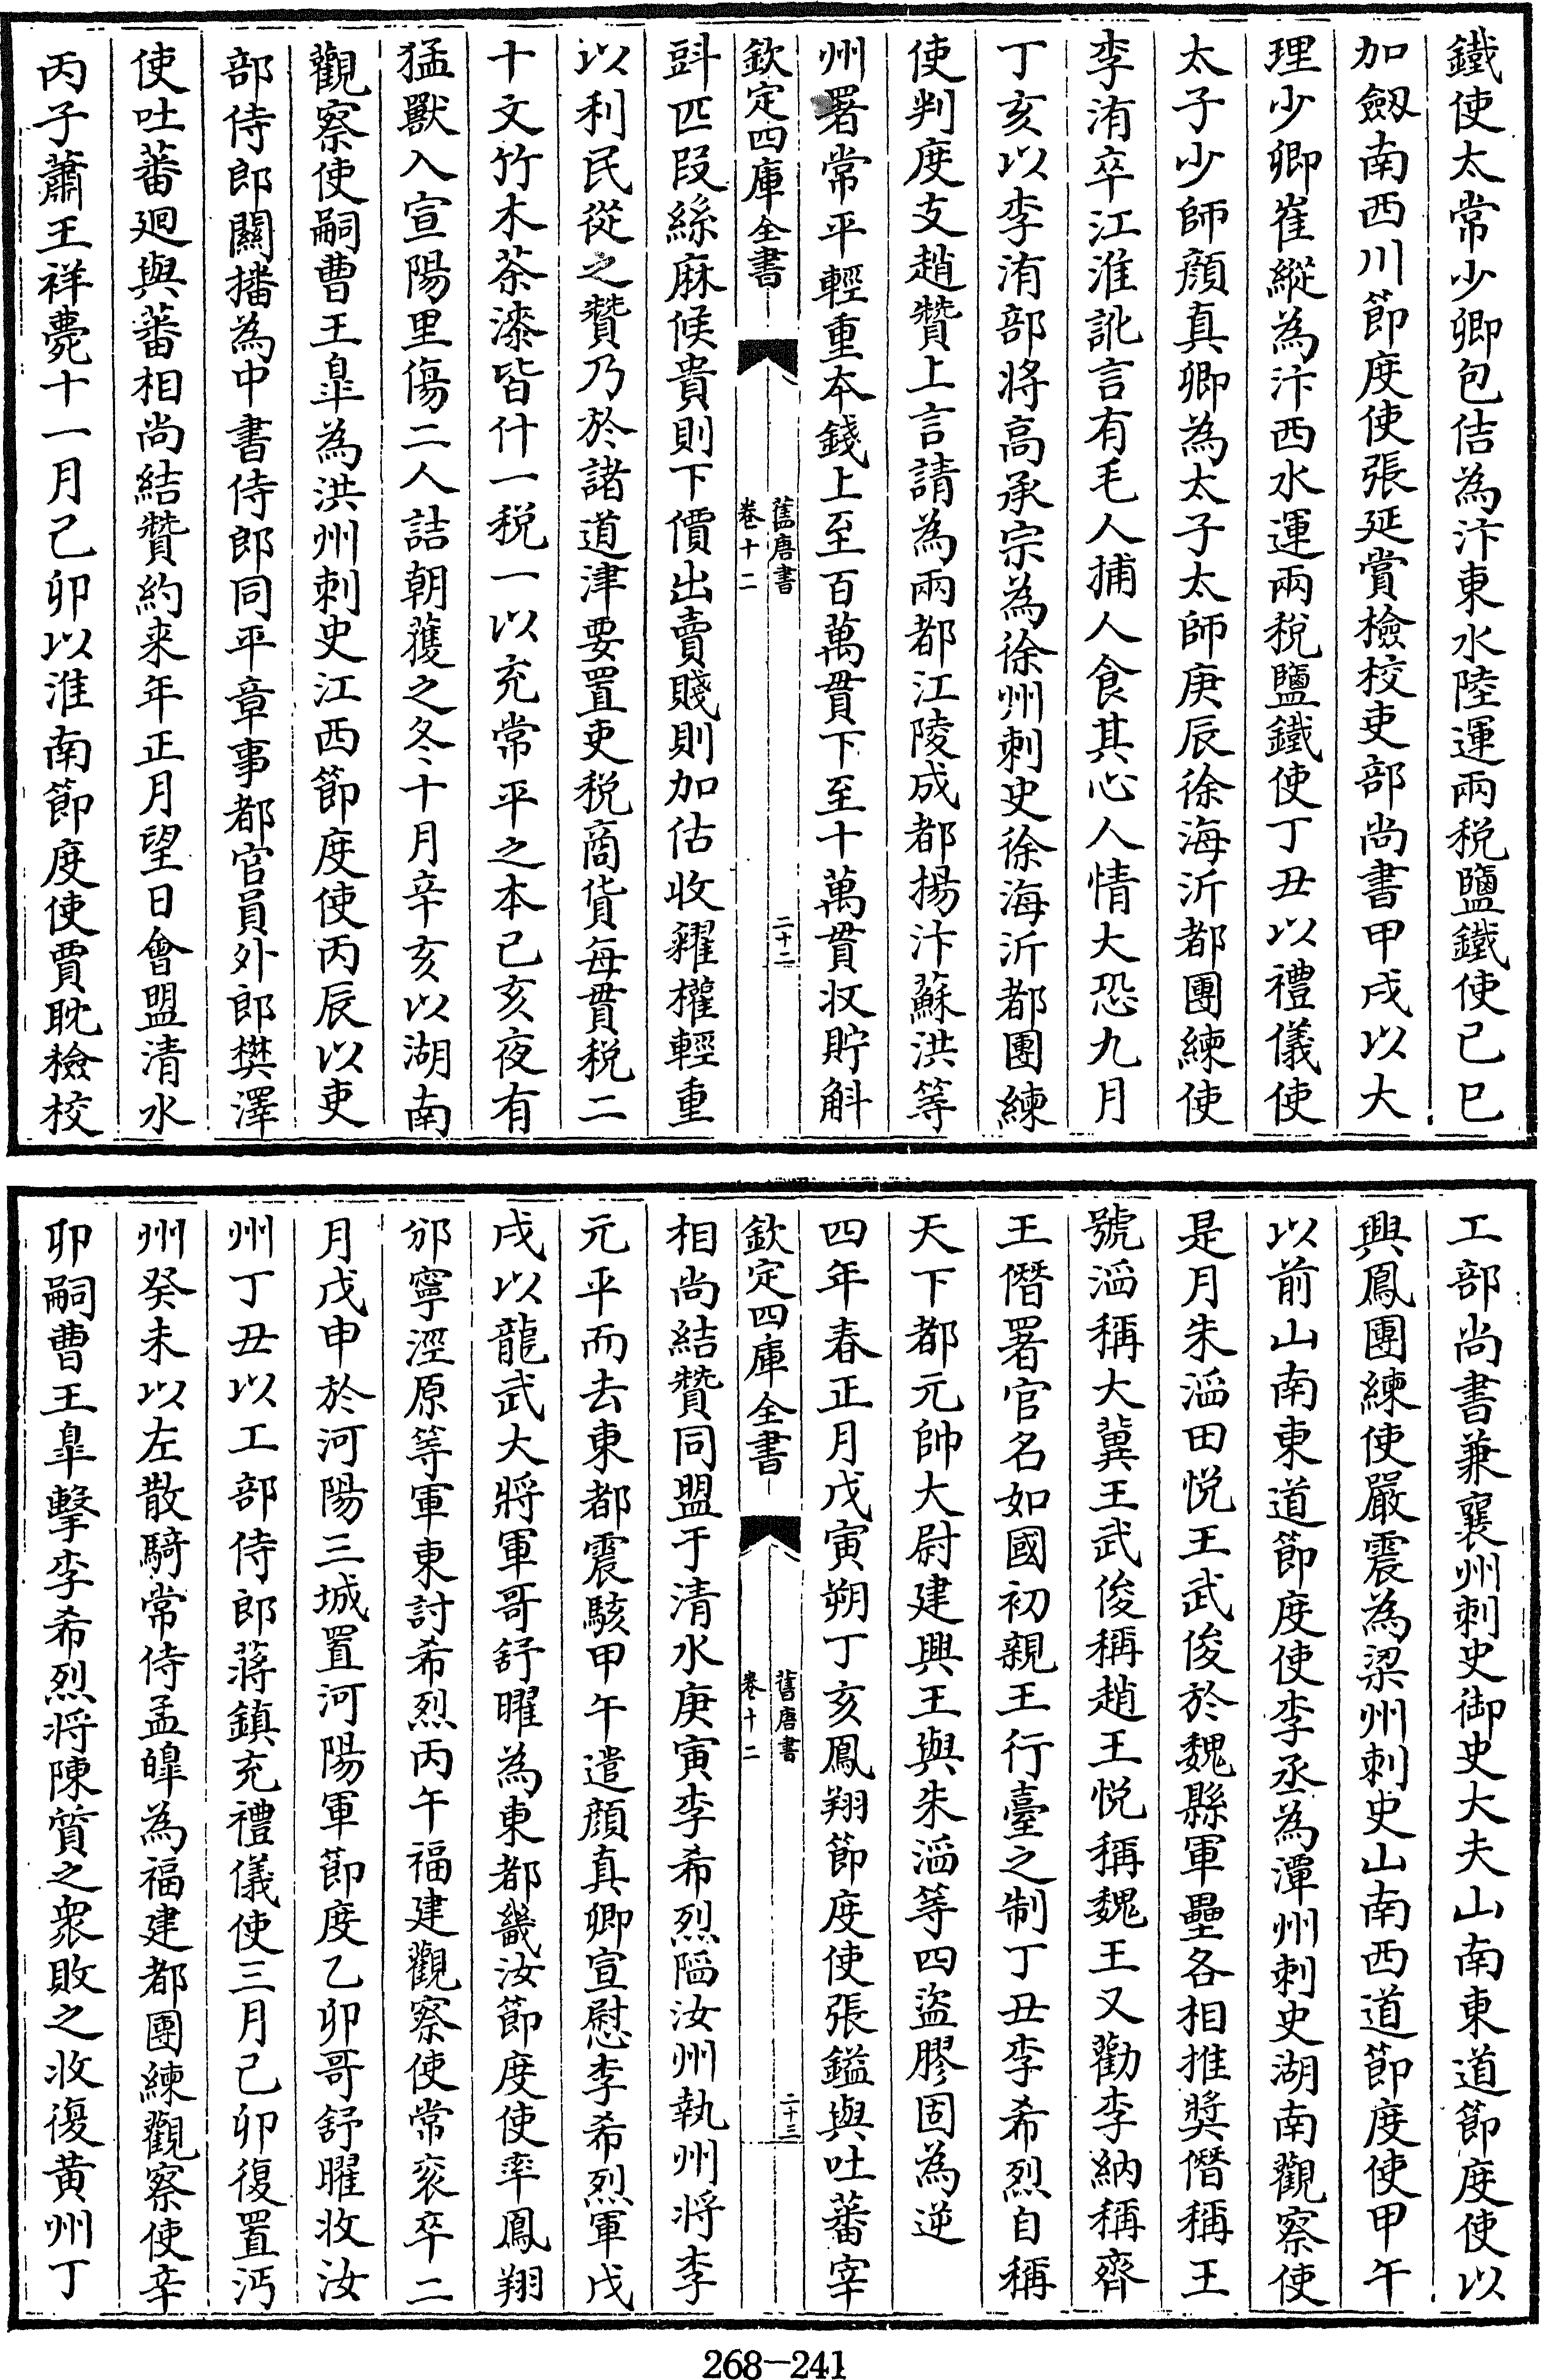 鐵使太常少卿包佶為汴東水陸運兩税鹽鐵使己巳
加劔南西川節度使張延賞檢校吏部尚書甲戌以大
理少卿崔縱為汴西水運兩税鹽鐵使丁丑以禮儀使
太子少師顔真卿為太子太師庚辰徐海沂都團練使
李洧卒江淮訛言有毛人捕人食其心人情大恐九月
丁亥以李洧部將高承宗為徐州刺史徐海沂都團練
使判度支趙贊上言請為兩都江陵成都揚汴蘇洪等
州署常平輕重本錢上至百萬貫下至十萬貫收貯斛
欽定四庫全書
舊唐書
卷十二
二十二
㪷匹段絲麻候貴則下價出賣賤則加估收糴權輕重
以利民從之贊乃於諸道津要置吏税商貨每貫税二
十文竹木茶漆皆什一税一以充常平之本己亥夜有
猛獸入宣陽里傷二人詰朝獲之冬十月辛亥以湖南
觀察使嗣曹王臯為洪州刺史江西節度使丙辰以吏
部侍郎關播為中書侍郎同平章事都官員外郎樊澤
使吐蕃廻與蕃相尚結贊約来年正月望日會盟清水
丙子蕭王祥薨十一月己卯以淮南節度使賈耽檢校
工部尚書兼襄州刺史御史大夫山南東道節度使以
興鳳團練使嚴震為梁州刺史山南西道節度使甲午
以前山南東道節度使李丞為潭州刺史湖南觀察使
是月朱滔田悦王武俊於魏縣軍壘各相推奬僭稱王
號滔稱大冀王武俊稱趙王悦稱魏王又勸李納稱齊
王僭署官名如國初親王行臺之制丁丑李希烈自稱
天下都元帥大尉建興王與朱滔等四盜膠固為逆
四年春正月戊寅朔丁亥鳳翔節度使張鎰與吐蕃宰
欽定四庫全書
舊唐書
卷十二
二十三
相尚結贊同盟于清水庚寅李希烈陷汝州執州将李
元平而去東都震駭甲午遣顔真卿宣慰李希烈軍戊
戌以龍武大將軍哥舒曜為東都畿汝節度使率鳳翔
邠寧涇原等軍東討希烈丙午福建觀察使常衮卒二
月戊申於河陽三城置河陽軍節度乙卯哥舒曜收汝
州丁丑以工部侍郎蔣鎮充禮儀使三月己卯復置沔
州癸未以左散騎常侍孟皥為福建都團練觀察使辛
卯嗣曹王臯擊李希烈將陳質之衆敗之收復黄州丁
268—241